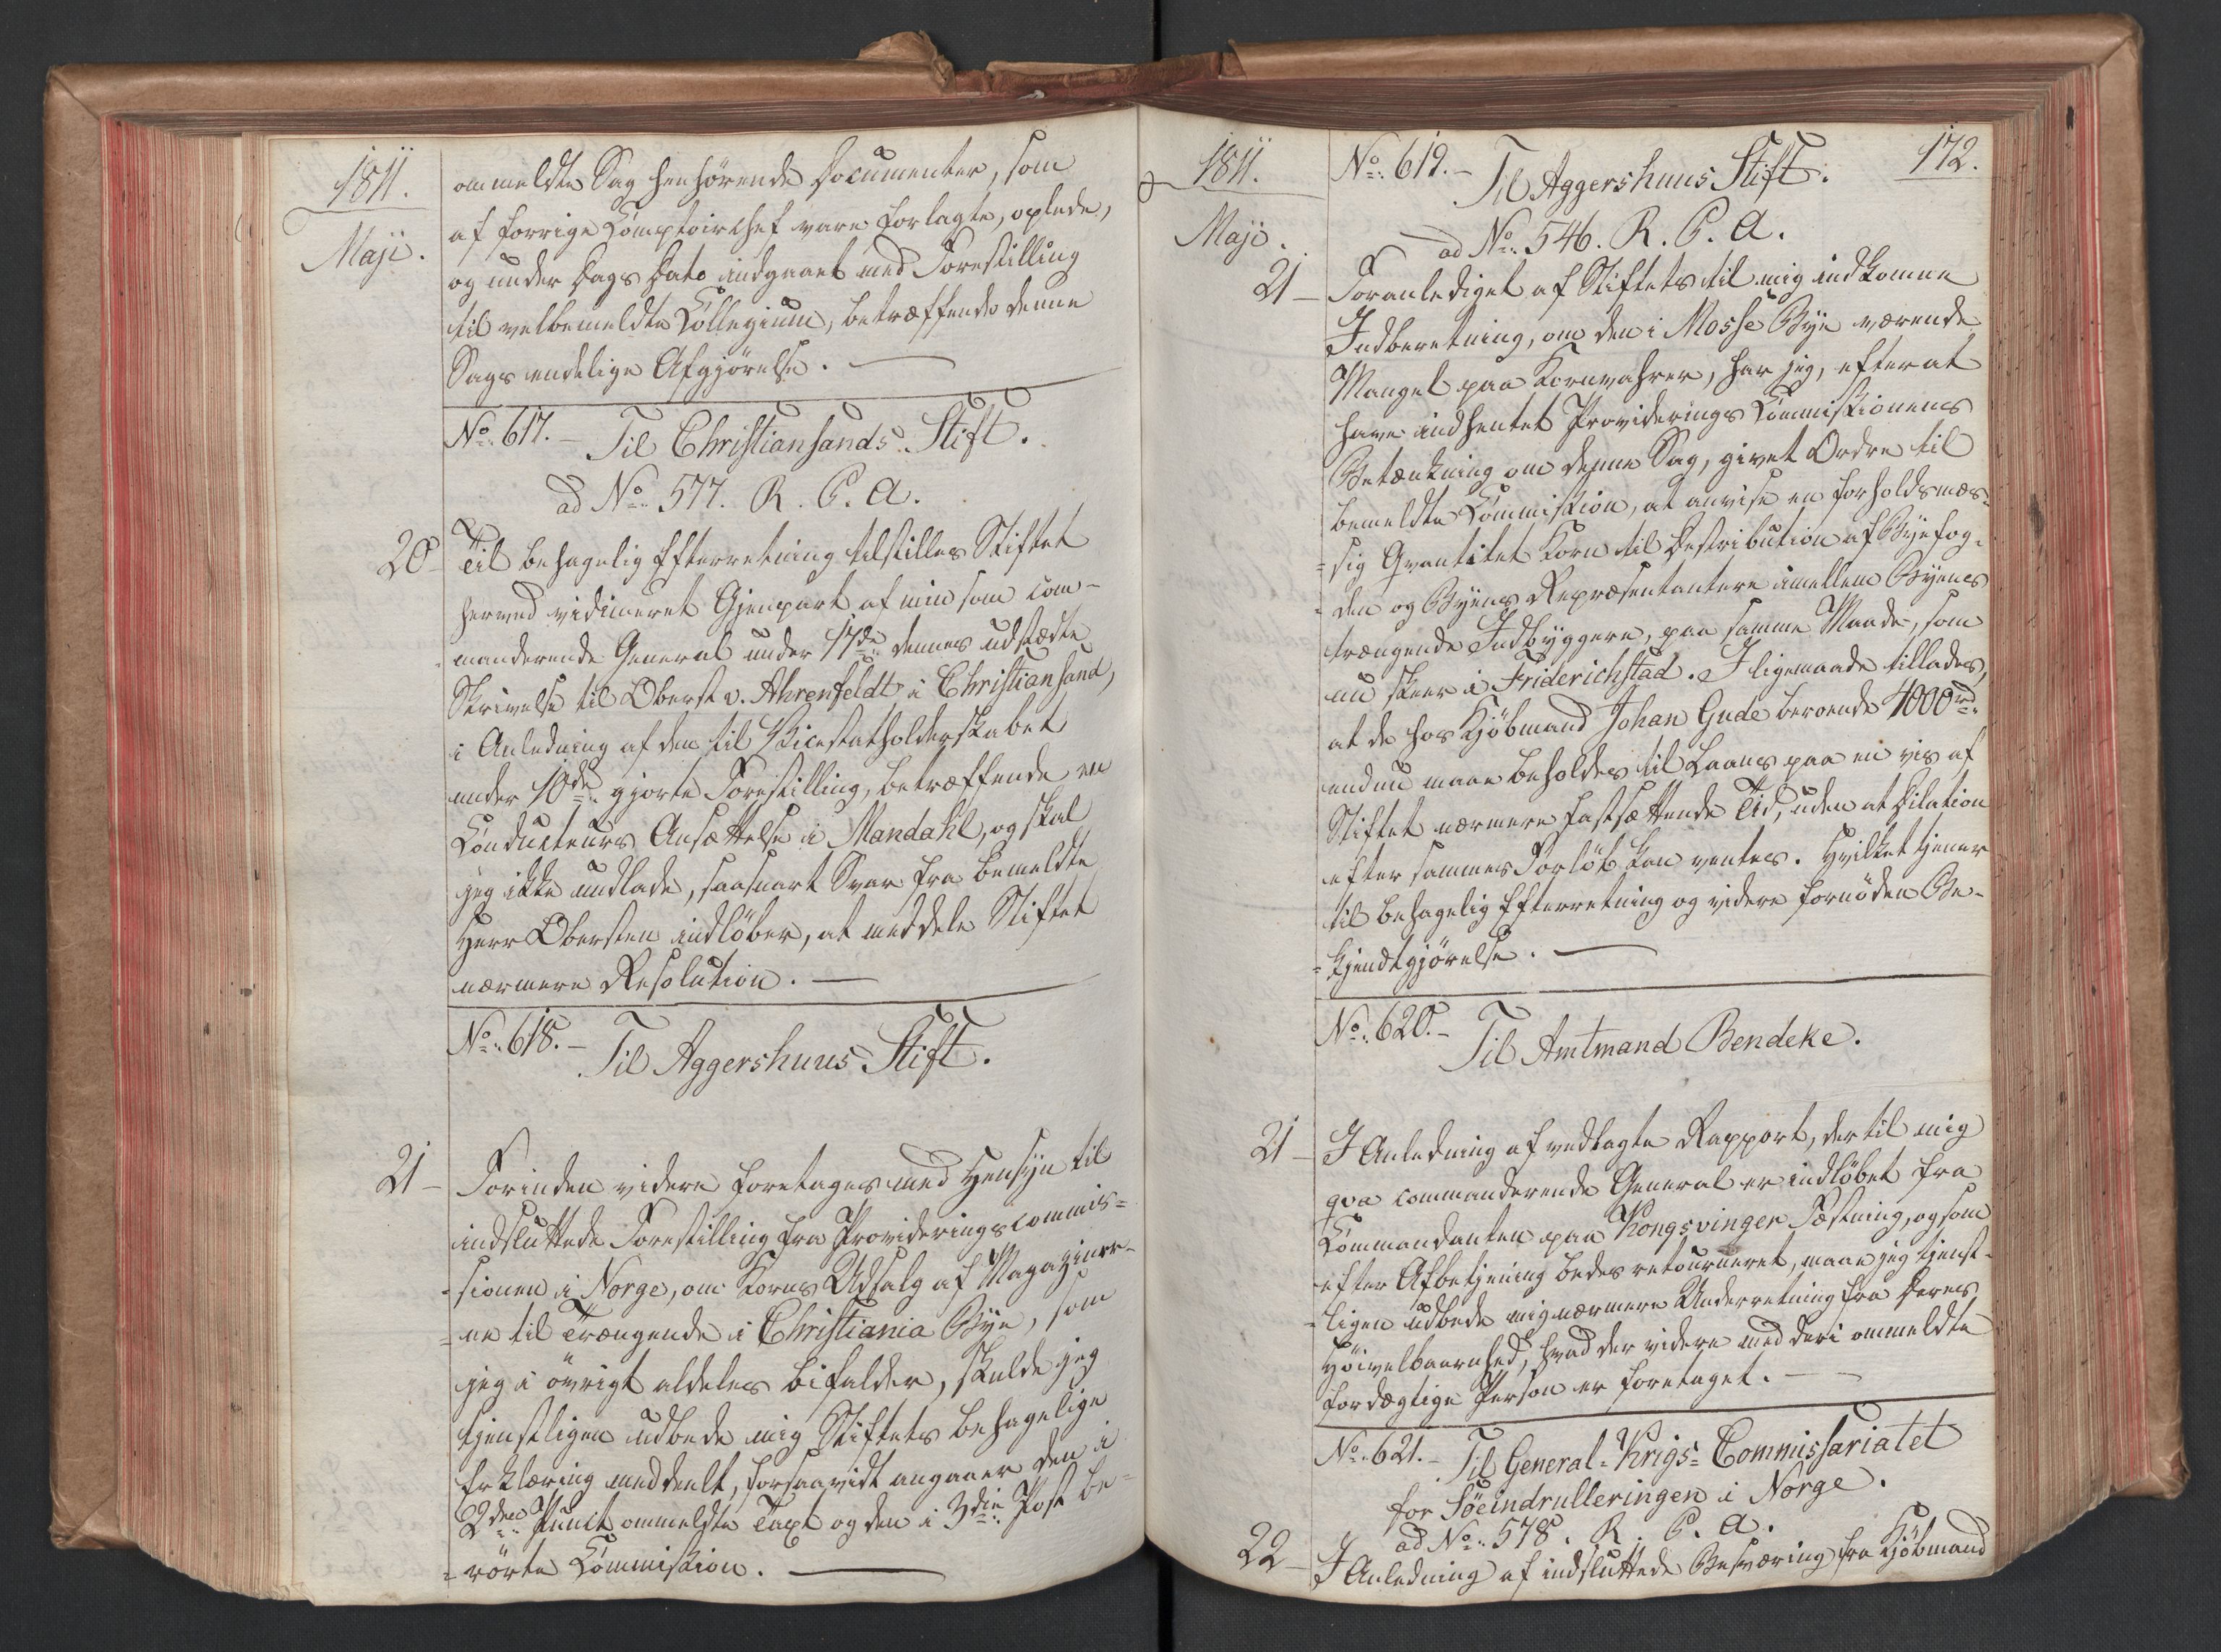 1811.
Maji.
ommeldte Sag henhørende Documenter, som
af forrige Comptoirchef vare forlagte, oplede,
og under Dags Dato indgaaet med Forestilling
til velbemeldte Collegium, betræffende denne
Sags endelige Afgjørelse. —
No. 617. – Til Christiansands Stift.
ad No. 577. R. P. A.
20 – Til behagelig Efterretning tilstilles Stiftet
herved vidimeret Gjenpart af min som com-
manderende General under 17de dennes udstædte
Skrivelse til Oberst v. Ahrenfeldt i Christiansand,
i Anledning af den til Vicestatholderskabet
under 10de gjorte Forestilling, betræffende en
Conducteurs Ansættelse i Mandahl, og skal
jeg ikke undlade, saasnart Svar fra bemeldte
Herr Obersten indløber, at meddele Stiftet
nærmere Resolution. —
No. 618. – Til Aggershuus Stift.
21 – Forinden videre foretages med Hensyn til
indsluttede Forestilling fra Provideringscommis=
=sionen i Norge, om Korns Udsalg af Magaziner-
=ne til Trængende i Christiania Bye, som
jeg i øvrigt aldeles bifalder, skulde jeg
tjenstligen udbede mig Stiftets behagelige
Erklæring meddeelt, forsaavidt angaaer den i
2den Punct ommeldte Taxt og den i 3die Post be=
=rørte Commission. —
1811.
Maji.
172.
No. 619. – Til Aggershuus Stift.
ad No. 546. R. P. A.
21 – Foranlediget af Stiftets til mig indkomne
Indberetning, om den i Mosse Bye værende
Mangel paa Kornvahrer, har jeg, efter at
have indhentet Providerings Commissionens
Betænkning om denne Sag, givet Ordre til
bemeldte Commission, at anvise en forholdsmæs=
=sig Qvantitet Korn til Destribution af Byefog-
=den og Byens Repræsentantere imellem Byens
trængende Indbyggere, paa samme Maade, som
nu skeer i Friderichstad. I ligemaade tillades,
at de hos Kjøbmand Johan Gude beroende 4000rd.
endnu maae beholdes til Laans paa en vis af
Stiftet nærmere fastsættende Tid, uden at Dilation
efter sammes Forløb kan ventes. Hvilket tjener
til behagelig Efterretning og videre fornøden Be-
=kjendtgjørelse. —
No. 620. – Til Amtmand Bendeke.
21 – I Anledning af vedlagte Rapport, der til mig
qva commanderende General er indløbet fra
Commandanten paa Kongsvinger Fæstning, og som
efter Afbetjening bedes retourneret, maae jeg tjenst-
=ligen udbede mig nærmere Underretning fra Deres
Høivelbaarnhed, hvad der videre med deri ommeldte
fordægtige Person er foretaget. —
No. 621. – Til General-Krigs-Commissariatet
for Söeindrulleringen i Norge.
ad No. 578. R. P. A.
22 – I Anledning af indsluttede Besværing fra Kjøbmand